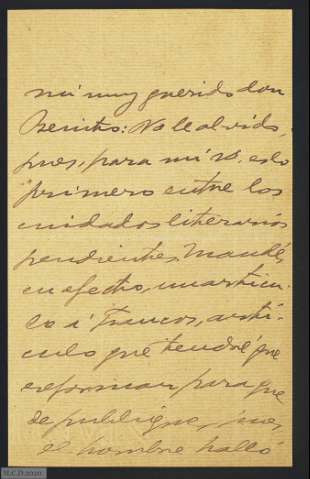 mi muy querido don
Benito: No le olvido,
pues, para mí es lo
primero entre los
cuidados literarios
pendientes. Mandé,
en efecto, un artícu-
lo á Francos, artí-
culo que tendré que
reformar para que
se publique, pues,
el hombre halló
M.C.D 2020